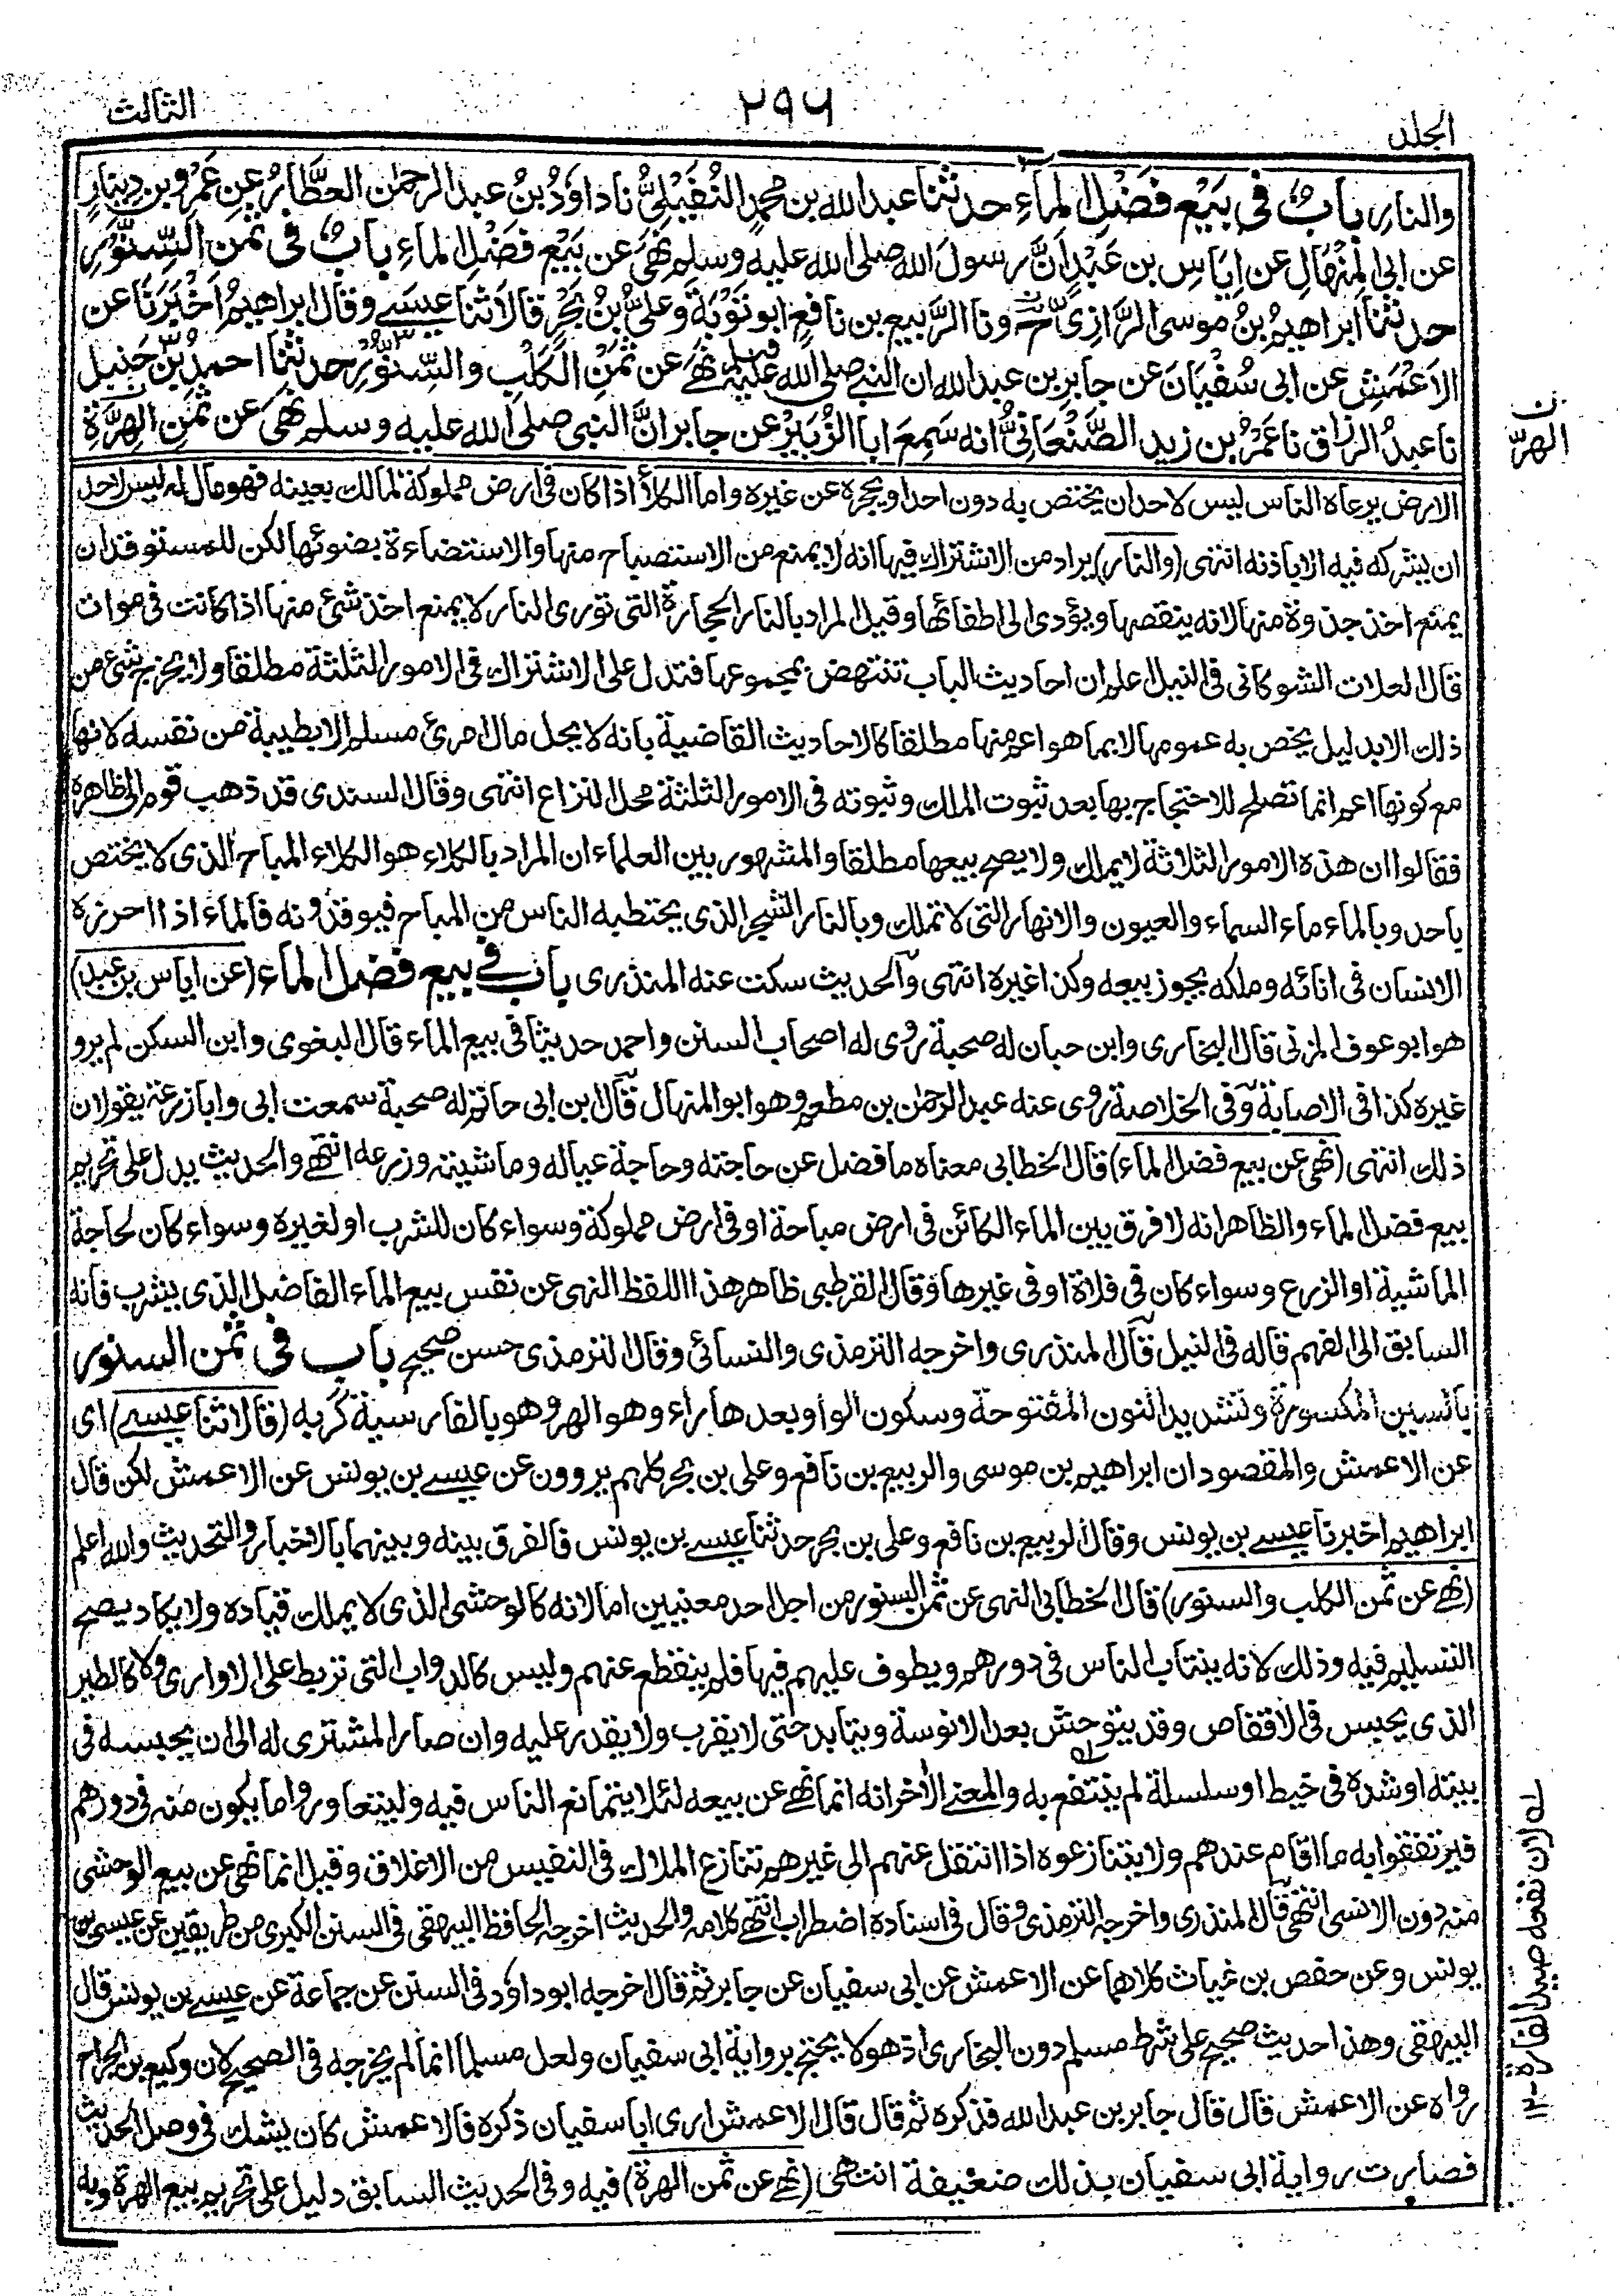 الجلد
٢٩٦
الثالث
والنار بابٌ في بَيْعِ فَضْلِ الماءِ حدثنا عبد الله بن محمدٍ النُّفَيْلِيُّ نا داوٗدُ بنُ عبد الرحمٰن العطَّارُ عن عَمْرِو بن دينارٍ
عن ابى المِنْهَالِ عن اِيَاسِ بن عَبْدٍ انَّ رسولَ الله صلى الله عليه وسلم نَهىَ عن بَيْعِ فَضْلِ الماءِ بابٌ في ثَمَنِ السِّنَّوْرِ
حدثنا ابراهيمُ بنُ موسى الرَّازِىُّ ح ونا الرَّبيع بن نافع ابو تَوْبَةَ وعلىُّ بنُ بَحْرٍ قالا ثنا عيسے وقال ابراهيمُ اَخْبَرَنَا عن
الاَعْمَشِ عن ابى سُفْيَانَ عن جابر بن عبد الله ان النبي صلى الله عليه وسلم نَهٰے عن ثَمَنِ الكَلْبِ والسِّنَّوْرِ حدثنا احمدُ بنُ حنبل
نا عبدُ الرزاق نا عُمَرُ بن زيد الصَّنْعَانِىُّ انه سَمِعَ ابا الزُّبَيْرِ عن جابر انَّ النبى صلى الله عليه وسلم نهىَ عن ثَمَنِ الهِرَّةِ
ن
الهِرّ
الارض يرعاه الناس ليس لاحد ان يختص به دون احد ويحجره عن غيره واما الكلأ اذا كان فى ارض مملوكة لمالك بعينه فهو مال له ليس لاحد
ان يشركه فيه الا باذنه انتهى (والنار) يراد من الاشتراك فيها انه لا يمنع من الاستصباح منها والاستضاءة بضوئها لكن للمستوقد ان
يمنع اخذ جذوة منها لانه ينقصها ويؤدى الى اطفائها وقيل المراد بالنار الحجارة التى تورى النار لا يمنع اخذ شئ منها اذا كانت فى موات
قال العلات الشوكانى فى النيل اعلم ان احاديث الباب تنتهض بمجموعها فتدل على الاشتراك فى الامور الثلثة مطلقا ولا يخرج شئ من
ذلك الا بدليل يخص به عمومها لا بما هو اعم منها مطلقا كالاحاديث القاضية بانه لا يحل مال امرئ مسلم الا بطيبة من نفسه لانها
مع كونها اعم انما تصلح للاحتجاج بها بعد ثبوت الملك وثبوته فى الامور الثلثة محل النزاع انتهى وقال السندى قد ذهب قوم الى ظاهره
فقالوا ان هذه الامور الثلاثة لا يملك ولا يصح بيعها مطلقا والمشهور بين العلماء ان المراد بالكلاء هو الكلاء المباح الذى لا يختص
باحد وبالماء ماء السماء والعيون والانهار التى لا تملك وبالنار الشجر الذى يحتطبه الناس من المباح فيوقدونه فالماء اذا احرزه
الانسان فى انائه وملكه يجوز بيعه وكذا غيره انتهى والحديث سكت عنه المنذرى باب في بيع فضل الماء (عن اياس بن عبد)
هو ابو عوف المزنى قال البخارى وابن حبان له صحبة روى له اصحاب السنن واحمد حديثا فى بيع الماء قال البغوى وابن السكن لم يرو
غيره كذا فى الاصابة وفى الخلاصة روى عنه عبد الرحمٰن بن مطعم وهو ابو المنهال قال ابن ابى حاتم له صحبة سمعت ابى وابا زرعة يقولان
ذلك انتهى (نهى عن بيع فضل الماء) قال الخطابى معناه ما فضل عن حاجته وحاجة عياله وماشيته وزرعه انتهے والحديث يدل على تحريم
بيع فضل الماء والظاهر انه لا فرق بين الماء الكائن فى ارض مباحة او فى ارض مملوكة وسواء كان للشرب او لغيره وسواء كان لحاجة
الماشية او الزرع وسواء كان فى فلاة او فى غيرها وقال القرطبى ظاهر هذا اللفظ النهى عن نفس بيع الماء الفاضل الذى يشرب فانه
السابق الى الفهم قاله فى النيل قال المنذرى واخرجه الترمذى والنسائى وقال الترمذى حسن صحيح باب فى ثمن السنور
بالسين المكسورة وتشديد النون المفتوحة وسكون الواو وبعدها راء وهو الهر وهو بالفارسية گربه (قالا ثنا عيسے) اى
عن الاعمش والمقصود ان ابراهيم بن موسى والربيع بن نافع وعلى بن بحر كلهم يروون عن عيسے بن يونس عن الاعمش لكن قال
ابراهيم اخبرنا عيسے بن يونس وقال الربيع بن نافع وعلى بن بحر حدثنا عيسے بن يونس فالفرق بينه وبينهما بالاخبار والتحديث والله اعلم
(نهے عن ثمن الكلب والسنور) قال الخطابى النهى عن ثمن السنور من اجل احد معنيين اما لانه كالوحشى الذى لا يملك قياده ولا يكاد يصح
التسليم فيه وذلك لانه ينتاب الناس فى دورهم ويطوف عليهم فيها فلم ينقطع عنهم وليس كالدواب التى تربط على الاوارى ولا كالطير
الذى يحبس فى الاقفاص وقد يتوحش بعد الانوسة ويتابد حتى لا يقرب ولا يقدر عليه وان صار المشترى له الى ان يحبسه فى
بيته او شده فى خيط او سلسلة لم ينتفع به والمعنے الاٰخر انه انما نهے عن بيعه لئلا يتمانع الناس فيه وليتعاوروا ما يكون منه فى دورهم
فيرتفقوا به ما اقام عندهم ولا يتنازعوه اذا انتقل عنهم الى غيرهم تنازع الملاك فى النفيس من الاغلاق وقيل انما نهى عن بيع الوحشى
منه دون الانسى انتهى قال المنذرى واخرجه الترمذى وقال فى اسناده اضطراب انتهے كلامه والحديث اخرجه الحافظ البيهقى فى السنن الكبرى من طريقين عن عيسى بن
يونس وعن حفص بن غياث كلاهما عن الاعمش عن ابى سفيان عن جابر ثم قال اخرجه ابو داؤد فى السنن عن جماعة عن عيسے بن يونس قال
البيهقى وهذا حديث صحيح على شرط مسلم دون البخارى اذ هو لا يحتج برواية ابى سفيان ولعل مسلما انما لم يخرجه فى الصحيح لان وكيع بن الجراح
رواه عن الاعمش قال قال جابر بن عبد الله فذكره ثم قال قال الاعمش ارى ابا سفيان ذكره فالاعمش كان يشك فى وصل الحديث
فصارت رواية ابى سفيان بذلك ضعيفة انتهى (نهے عن ثمن الهرة) فيه وفى الحديث السابق دليل على تحريم بيع الهرة وبه
لان نفعه صيد الفارة ١٢